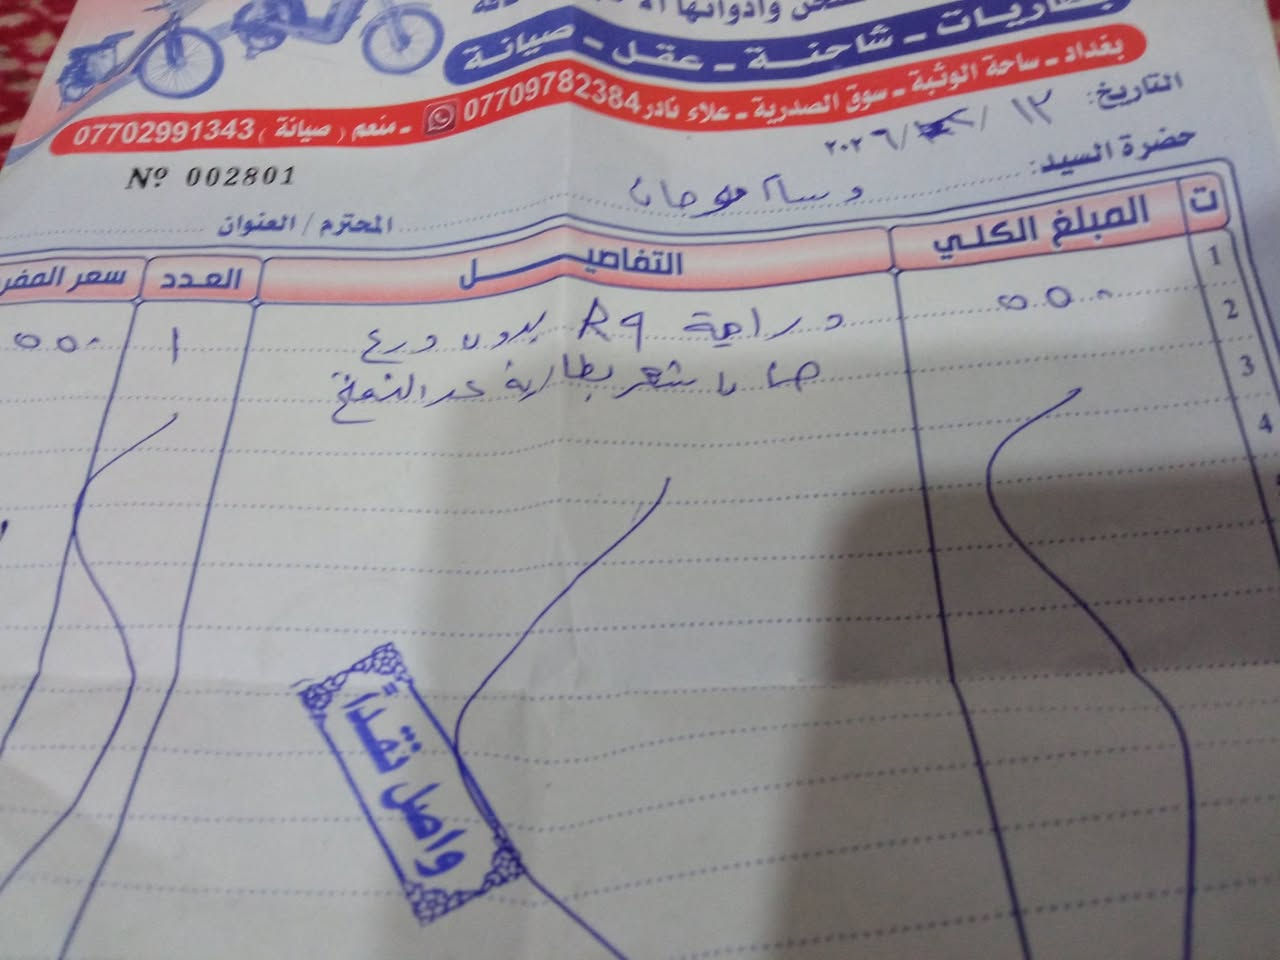 بطاريات - شاحنة - عقل - صيانة
بغداد - ساحة الوثبة - سوق الصدرية - علاء نادر 07709782384 - منعم ( صيانة ) 07702991343
التاريخ: ١٢ / / ٢٠٢٦
Nº 002801
حضرة السيد: وسام المحترم / العنوان
ت المبلغ الكلي التفاصيل العدد سعر المفر
1 ٥٥٠ دراجة R9 بدون درع ١ ٥٥٠
2 ضمان شهر بطارية عدا النفخ
3
4
واصل نقداً